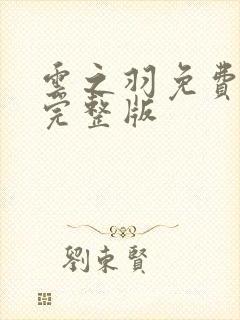 雲之羽免費
完整版
劉東賢